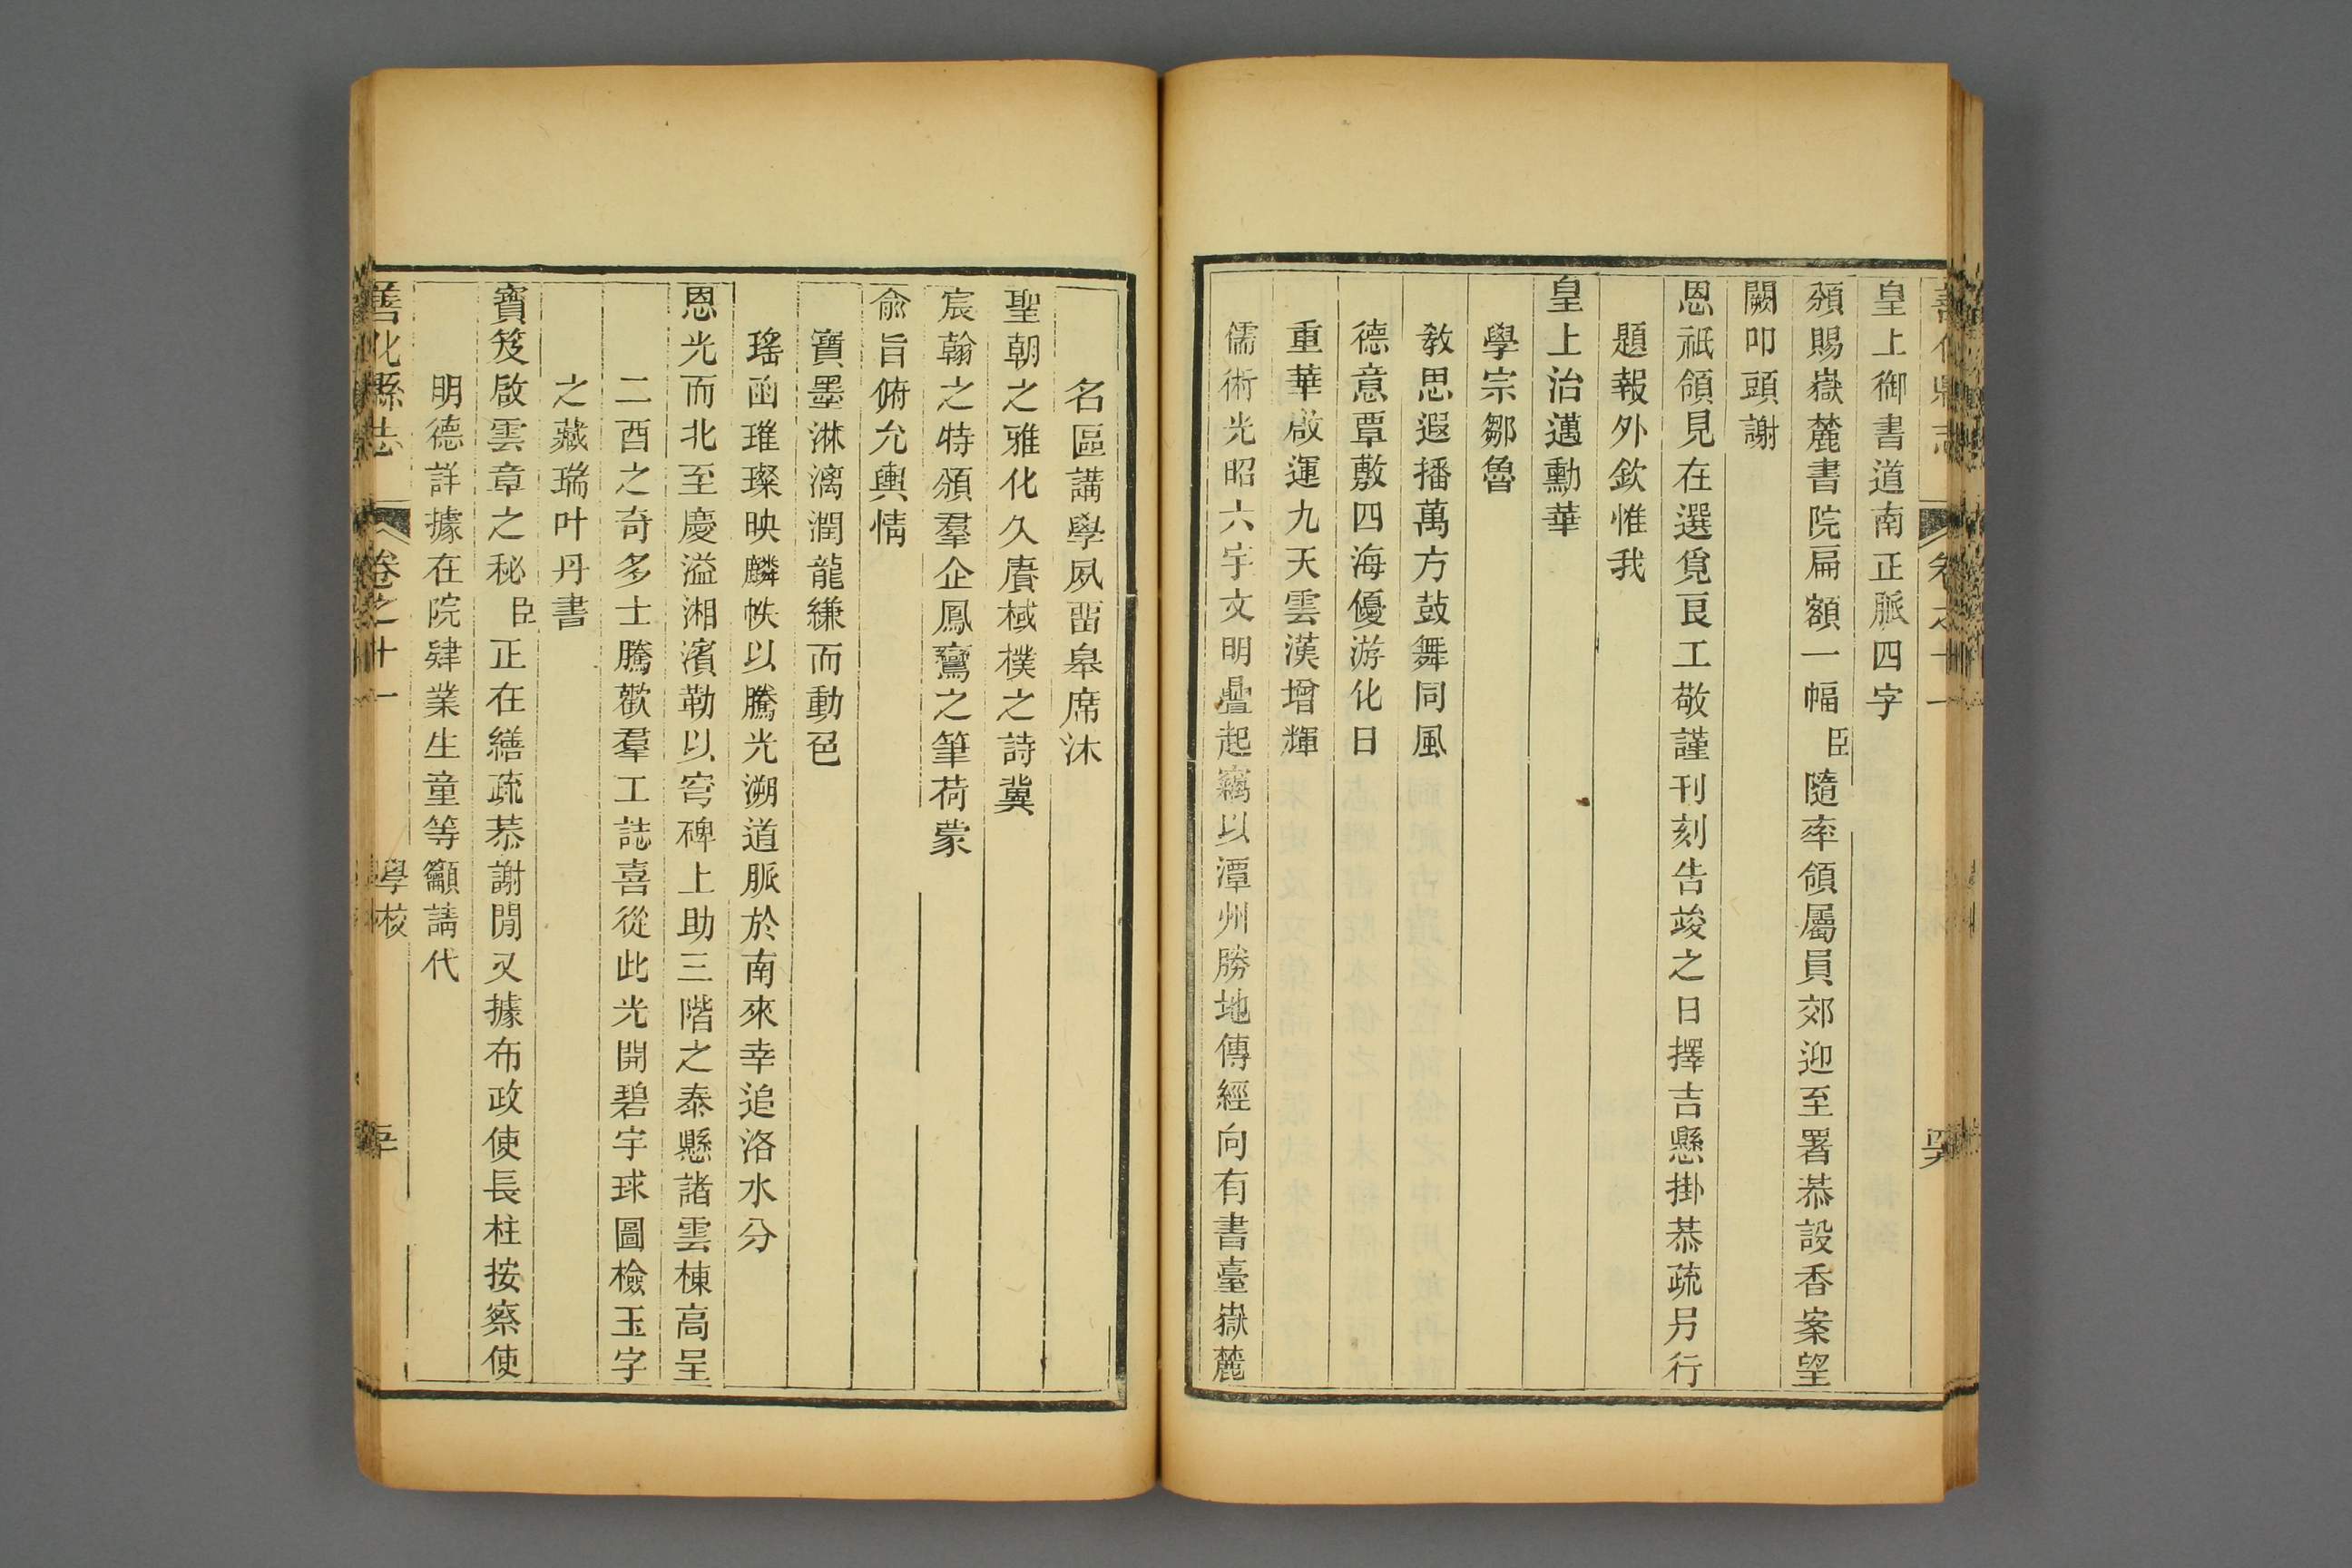 皇上御書道南正脈四字
頒賜嶽麓書院扁額一幅臣隨率領屬員郊迎至署恭設香案望
闕叩頭謝
恩祇領見在選覓良工敬謹刊刻告竣之日擇吉懸掛恭疏另行
題報外欽惟我
皇上治邁勳華
學宗鄒魯
敎思遐播萬方鼓舞同風
德意覃敷四海優游化日
重華啟運九天雲漢增輝
儒術光昭六宇文明疊起竊以潭州勝地傳經向有書臺嶽麓
名區講學夙畱皋席沐
聖朝之雅化久賡棫樸之詩冀
宸翰之特頒羣企鳳鸞之筆荷蒙
俞旨俯允輿情
寶墨淋漓潤龍縑而動色
瑤函璀璨映麟帙以騰光溯道脈於南來幸追洛水分
恩光而北至慶溢湘濱勒以穹碑上助三階之泰懸諸雲棟高呈
二酉之奇多士騰歡羣工誌喜從此光開碧宇球圖檢玉字
之藏瑞叶丹書
寶笈啟雲章之秘臣正在繕疏恭謝閒又據布政使長柱按察使
明德詳據在院肄業生童等籲請代
善化縣志 卷之十一 學校